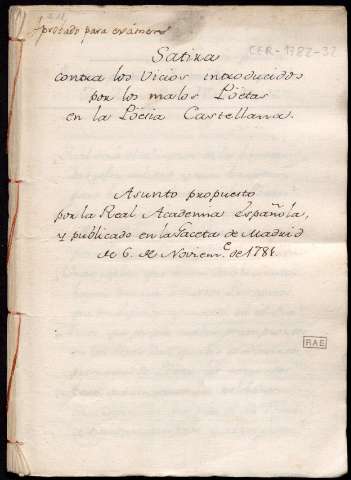 probado para exámen
CER-1782-32
Satira
contra los Vicios introducidos
por los malos Pöetas
en la Pöesia Castellana.
Asunto propuesto
por la Real Academia Española,
y publicado en la Gaceta de Madrid
de 6. de Noviem.e de 1781.
RAE